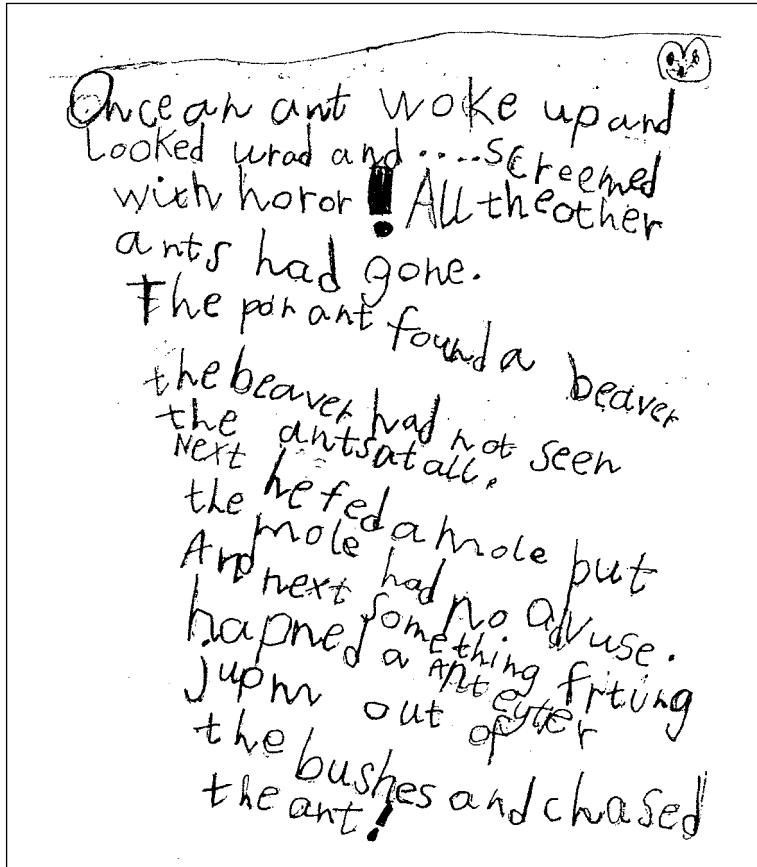 Once an ant woke up and
Looked urod and ....screemed
with horor! All the other
ants had gone.
The por ant found a beaver
the beaver had not seen
the ants at all.
Next he fed a mole but
the mole had no advuse.
And next something frtung
hapned a Ant eyter
jupm out of
the bushes and chased
the ant!